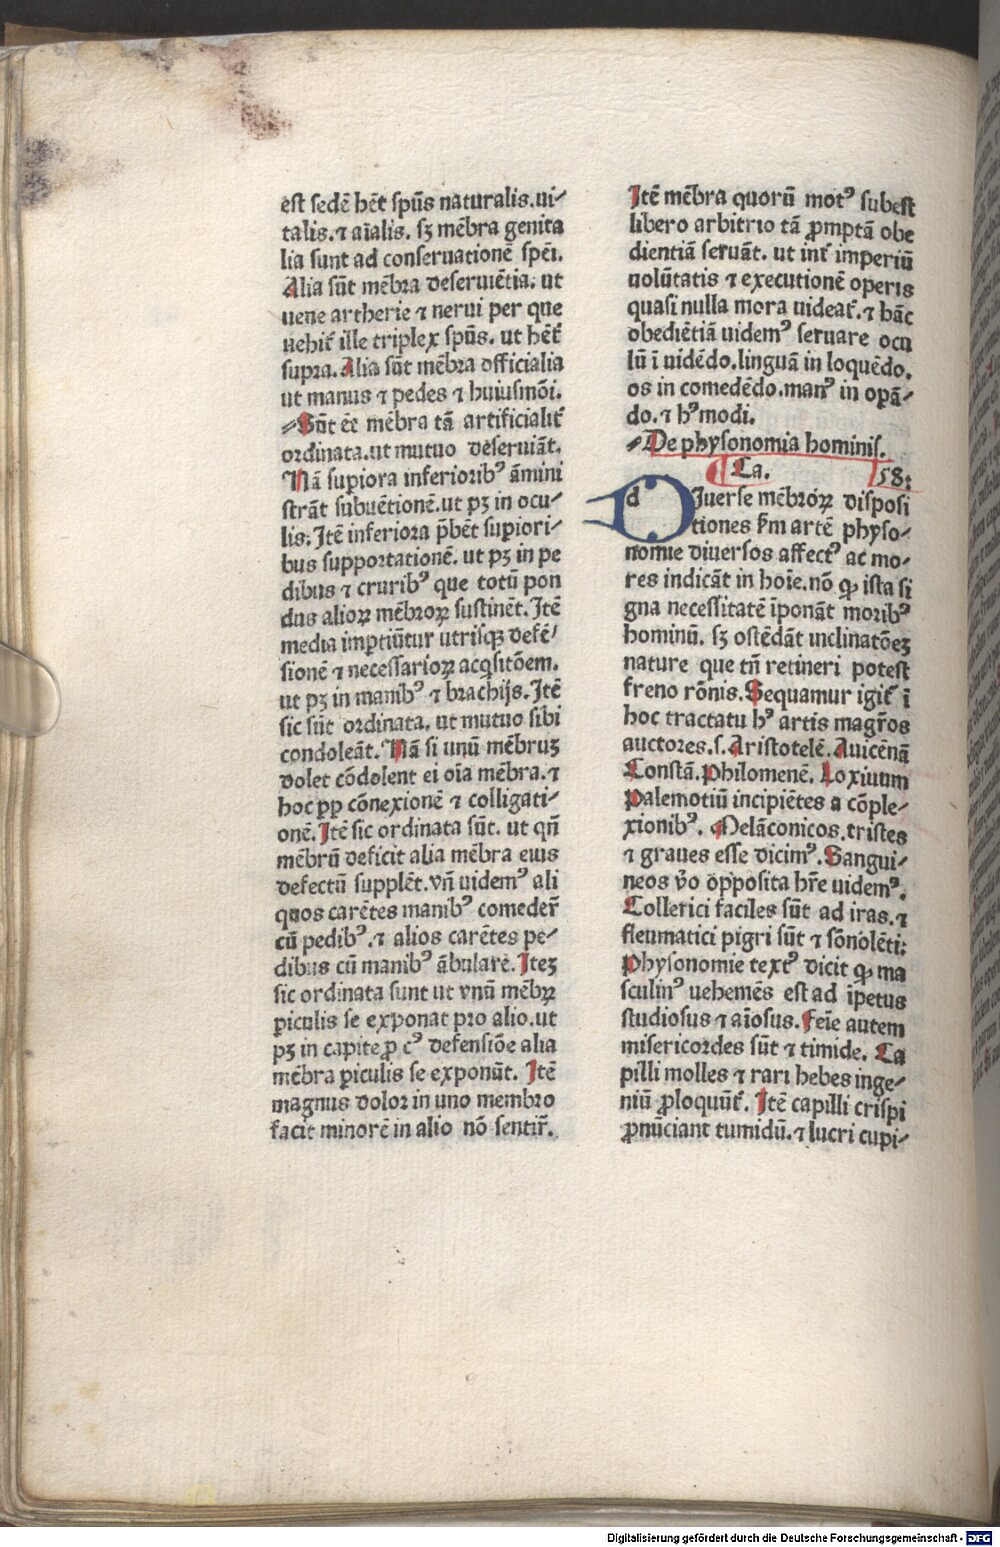 est sedē hēt spūs naturalis.ui⸗
talis.⁊ aīalis. sꝫ mēbra genita
lia sunt ad conseruationē spēi.
Alia sūt mēbra deseruiētia. ut
uene artherie ⁊ nerui per que
uehit᷑ ille triplex spūs. ut hēt᷑
supra. Alia sūt mēbra officialia
ut manus ⁊ pedes ⁊ huiusmōi.
⸗Sūt ēt mēbra tā artificialit᷑
ordinata.ut mutuo deseruiāt.
Nā supiora inferiorib⁹ āmini
strāt subuētionē.ut pꝫ in ocu⸗
lis. Itē inferiora p̄bēt supiori⸗
bus supportationē. ut pꝫ in pe
dibus ⁊ crurib⁹ que totū pon
dus alioꝝ mēbroꝝ sustinēt. Itē
media imptiūtur utrisqꝫ defē⸗
sionē ⁊ necessarioꝝ acq̄sitōem.
ut pꝫ in manib⁹ ⁊ brachijs. Itē
sic sūt ordinata. ut mutuo sibi
condoleāt. Nā si unū mēbruꝫ
dolet cōdolent ei oīa mēbra. ⁊
hoc ꝓp cōnexionē ⁊ colligati⸗
onē. Itē sic ordinata sūt. ut qñ
mēbrū deficit alia mēbra eius
defectū supplēt. vñ uidem⁹ ali
quos carētes manib⁹ comeder̄
cū pedib⁹. ⁊ alios carētes pe⸗
dibus cū manib⁹ ābulare. Iteꝫ
sic ordinata sunt ut vnū mēbꝝ
ꝑiculis se exponat pro alio.ut
pꝫ in capite ꝓ c⁹ defensiōe alia
mēbra ꝑiculis se exponūt. Itē
magnus dolor in uno membro
facit minorē in alio nō sentir̄.
Itē mēbra quorū mot⁹ subest
libero arbitrio tā ꝓmptā obe
dientiā seruāt. ut int᷑ imperiū
uolūtatis ⁊ executionē operis
quasi nulla mora uideat᷑. ⁊ hāc
obediētiā uidem⁹ seruare ocu
lū ī uidēdo.linguā in loquēdo.
os in comedēdo.man⁹ in opā⸗
do. ⁊ h⁹modi.
⸗De physonomia hominis.
Ca. 58:
dIuerse mēbroꝝ disposi
tiones ẜm artē physo⸗
nomie diuersos affect⁹ ac mo⸗
res indicāt in hoīe.nō ꝙ ista si
gna necessitatē īponāt morib⁹
hominū. sꝫ ostēdāt inclinatōeꝫ
nature que tñ retineri potest
freno rōnis. Sequamur igit᷑ ī
hoc tractatu h⁹ artis magr̄os
auctores.s. Aristotelē. Auicēnā
Constā. Philomenē. Loxiuum
Palemotiū incipiētes a cōple⸗
xionib⁹. Melācōnicos.tristes
⁊ graues esse dicim⁹. Sangui⸗
neos v̄o opposita hr̄e uidem⁹.
Collerici faciles sūt ad iras. ⁊
fleumatici pigri sūt ⁊ sōnolēti:
Physonomie text⁹ dicit ꝙ ma
sculin⁹ uehemēs est ad īpetus
studiosus ⁊ aīosus. Feīe autem
misericordes sūt ⁊ timide. Ca
pilli molles ⁊ rari hebes inge⸗
niū ꝓloquūt᷑. Itē capilli crispi
ꝓnūciant tumidū. ⁊ lucri cupi⸗
Digitalisierung gefördert durch die Deutsche Forschungsgemeinschaft - DFG